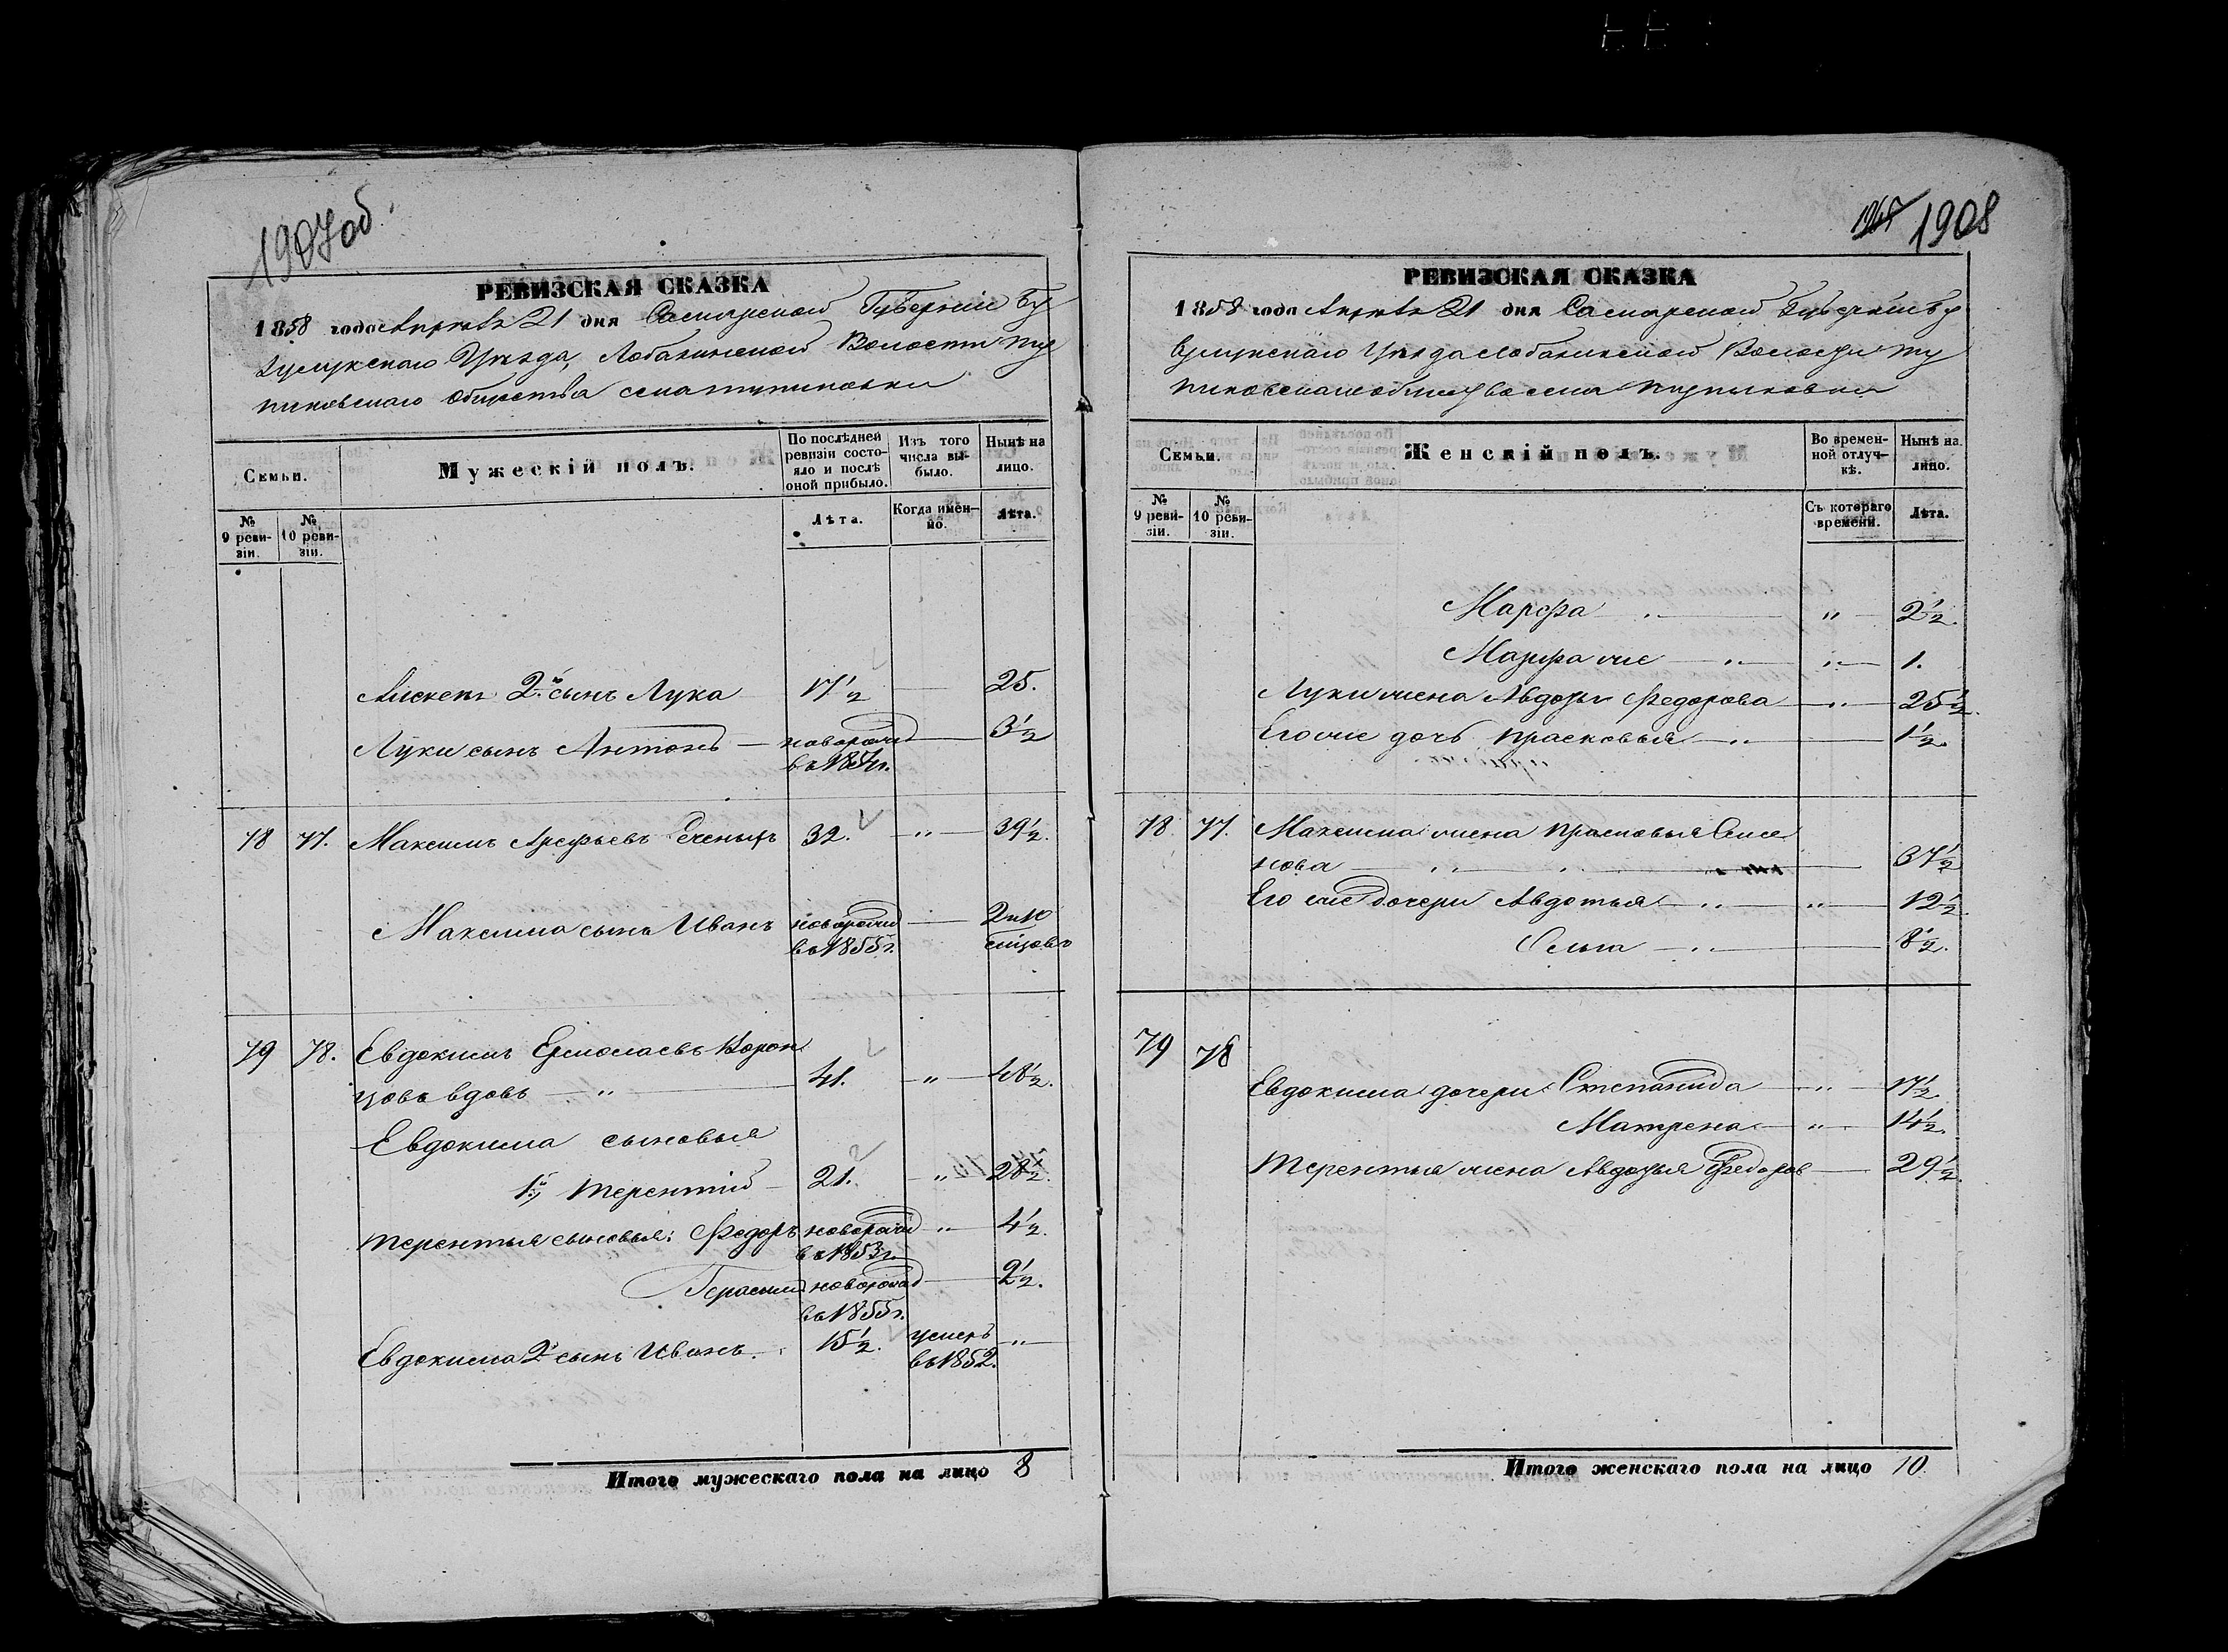 1907об.
РЕВИЗСКАЯ СКАЗКА
1858 года Апреля 21 дня Самарской Губернии Бу
зулукскаго Уѣзда, Лобазинской Волости
Общества села
Семьи.
Мужескій полъ.
По послѣдней ревизіи состояло и послѣ оной прибыло.
Изъ того числа выбыло.
Нынѣ на лицо.
№ 9 ревизіи.
№ 10 ревизіи.
Лѣта.
Когда именно.
Лѣта.
2й сынъ Лука 17½ — 25.
Луки сынъ Антонъ — новорожд — 3½
въ 1854г.
78 77. Максимъ Арефьевъ 32. — " — 39½.
Максима сынъ Иванъ новорожд — 2 и 10
въ 1855г. мѣсяцовъ
79 78. Евдокимъ Ермолаевъ Ворон
цовъ вдовъ — " — 41. — " — 48½.
Евдокима сыновья
1й Терентій — 21. — " — 28½.
Терентья сыновья: Федоръ новорожд " — 4½.
въ 1853г.
Герасимъ новорожд — 2½.
въ 1855г.
Евдокима 2й сынъ Иванъ. 15½. умеръ — " —
въ 1852.
Итого мужескаго пола на лицо 8
1908
РЕВИЗСКАЯ СКАЗКА
1858 года Апреля 21 дня Самарской Губерніи Бу
зулукскаго Уѣзда Лобазинской Волости
общества села
Семьи.
Женскій полъ.
Во временной отлучкѣ.
Нынѣ на лицо.
№ 9 ревизіи.
№ 10 ревизіи.
Съ котораго времени.
Лѣта.
Марфа — " — 2½.
Марфа же — " — " — 1.
Луки жена Авдотья Федорова — " — 25½.
Его же дочь Прасковья — " — 1½.
78 77. Максима жена Прасковья Семе
нова — 37½
Его же дочери Авдотья — " — " — 12½.
Ольга — " — 8½.
79 78
Евдокима дочери: Степанида — " — 17½.
Матрена — " — 14½.
Терентья жена Авдотья Федоров — 29½.
Итого женскаго пола на лицо 10.